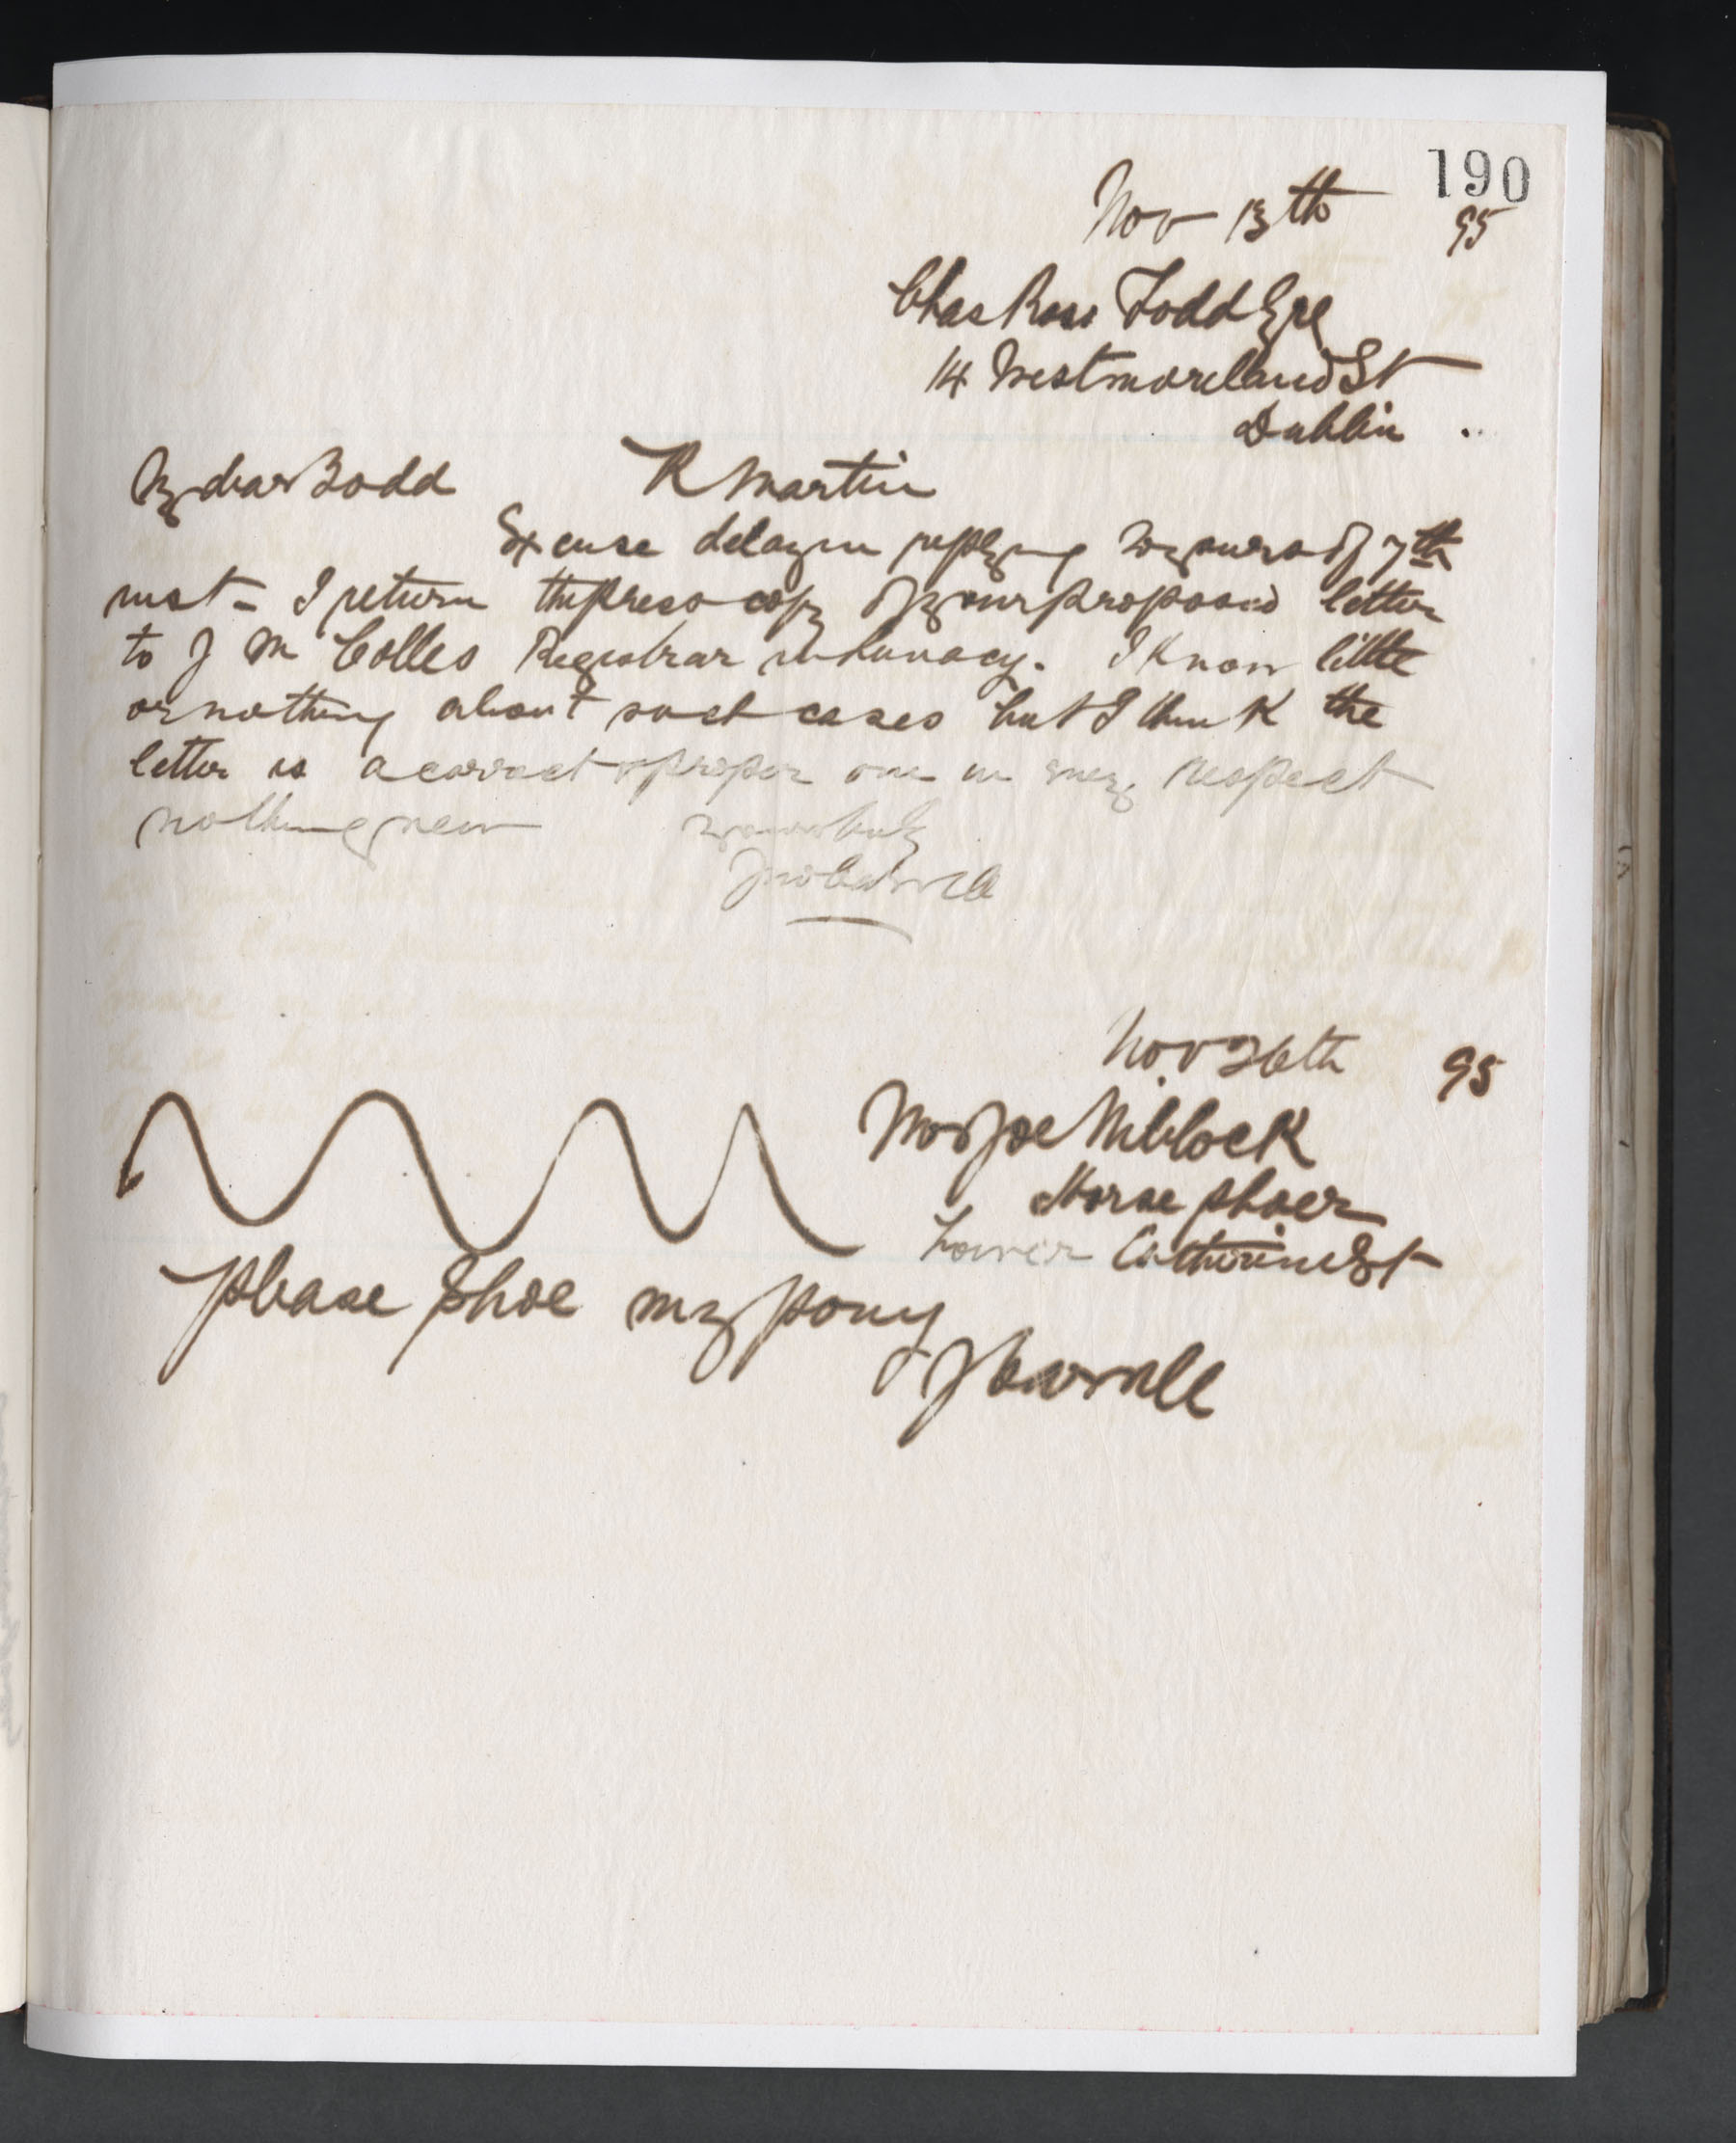 190
Nov 13th 95
Chas Ross Todd Esq
14 Westmoreland St
Dublin
My dear Todd R Martin
Excuse delay in replying to yours of 7th
inst - I return the press copy of your proposed letter
to J M Colles Registrar in Lunacy. I know little
or nothing about such cases but I think the
letter is a correct & proper one in every respect
nothing new yours truly
Jno
Nov 26th 95
Mr Joe Niblock
Horse shoer
Lower Catherine St
Please shoe my pony
J